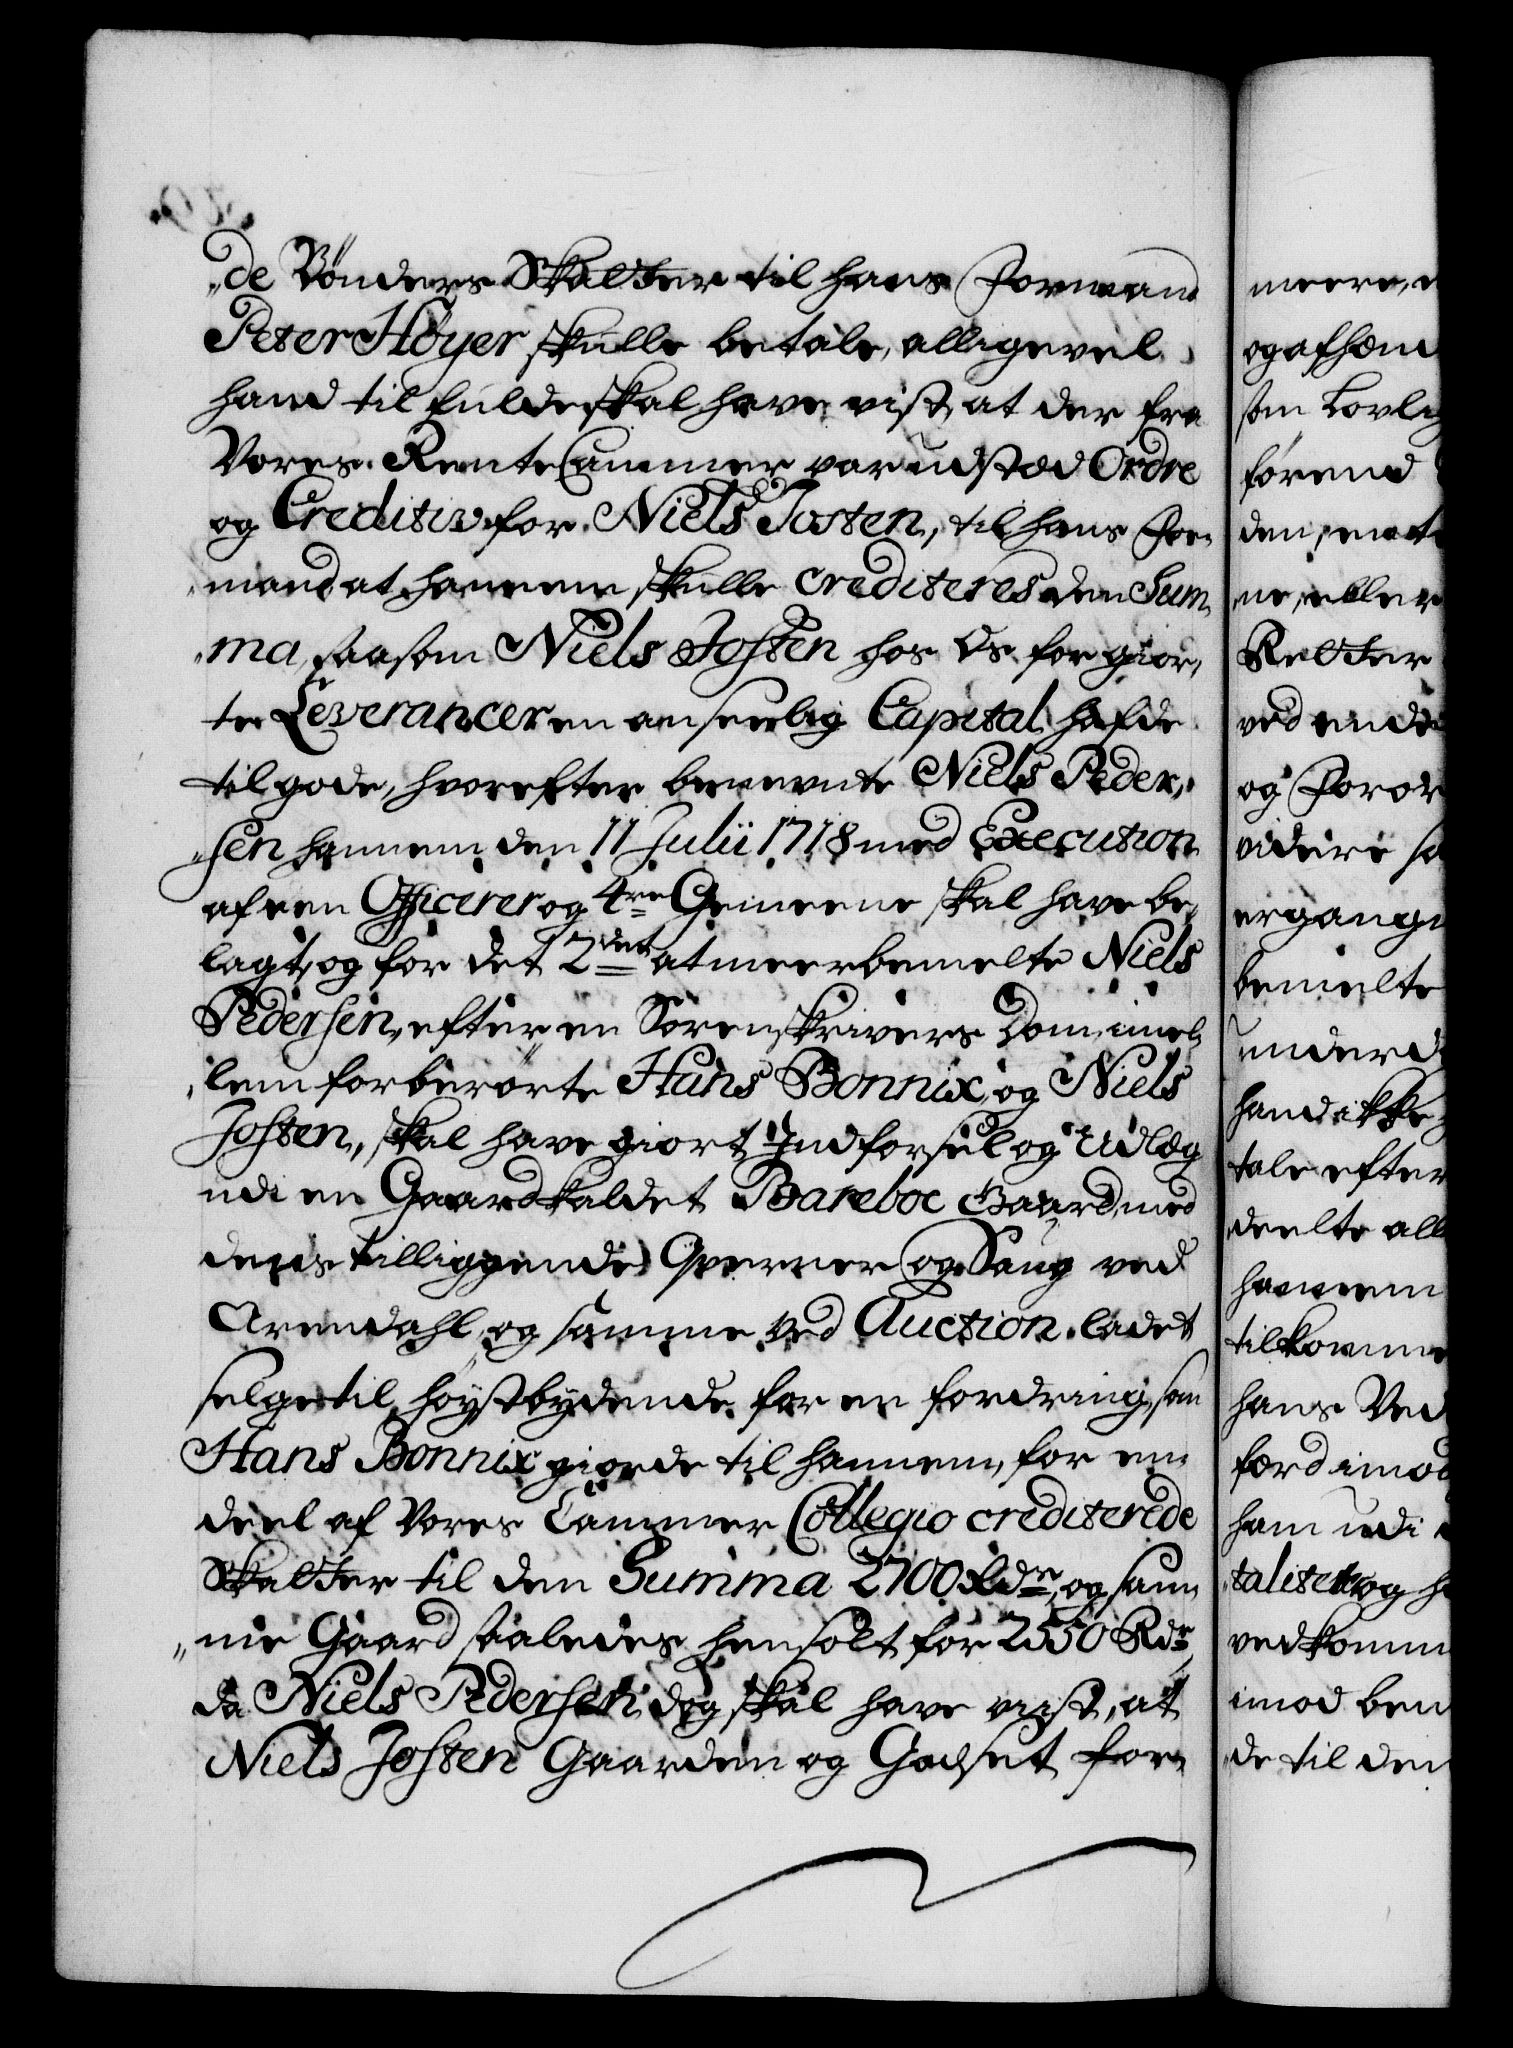 „de Bønders Skatter til hans Formand
Peter Høyer skulle betale, alligevel
hand til fulde skal have vist, at der fra
Vores RenteCammer var udstæd Ordre
og Creditiv for Niels Josten, til hans For„
„mand at hannem skulle crediteres den Sum„
„ma, saasom Niels Josten hos Os for gior„
te Leverancer en anseelig Capital hafde
tilgode, hvorefter benevnte Niels Peder„
„sen hannem den 11 Julii 1718 med Execution
af en Officerer og 4re Gemeene skal have be„
lagt, og for det 2det at meerbemelte Niels
Pedersen, efter en Sorenskrivers Dom, imel„
„lem forberørte Hans Bonnix, og Niels
Josten, skal have giort Indførsel og Udlæg
udi en Gaard kaldet Bareboe Gaard, med
dens tilliggende Qverner og Saug ved
Arendahl, og samme ved Auction ladet
selge til høystbydende for en fordring, som
Hans Bonnix giorde til hannem, for en
deel af Vores Cammer Collegio crediterede
Skatter til den Summa 2700 Rdr, og sam„
„me Gaard saaledes hensolt for 2550 Rdr
da Niels Pedersen dog skal have vist, at
Niels Josten Gaarden og Godset for„
meere,
og afhænd
som Lovlig
førend
den, mat
ne, eller
Retter
ved ende
og Foror
videre sa
ergange
bemelte
underd
hand ikke
tale efter
deelte all
hannem
tilkomme
hans Ved
færd imod
ham udi
„talitet og h
vedkomm
imod ben
„de til den